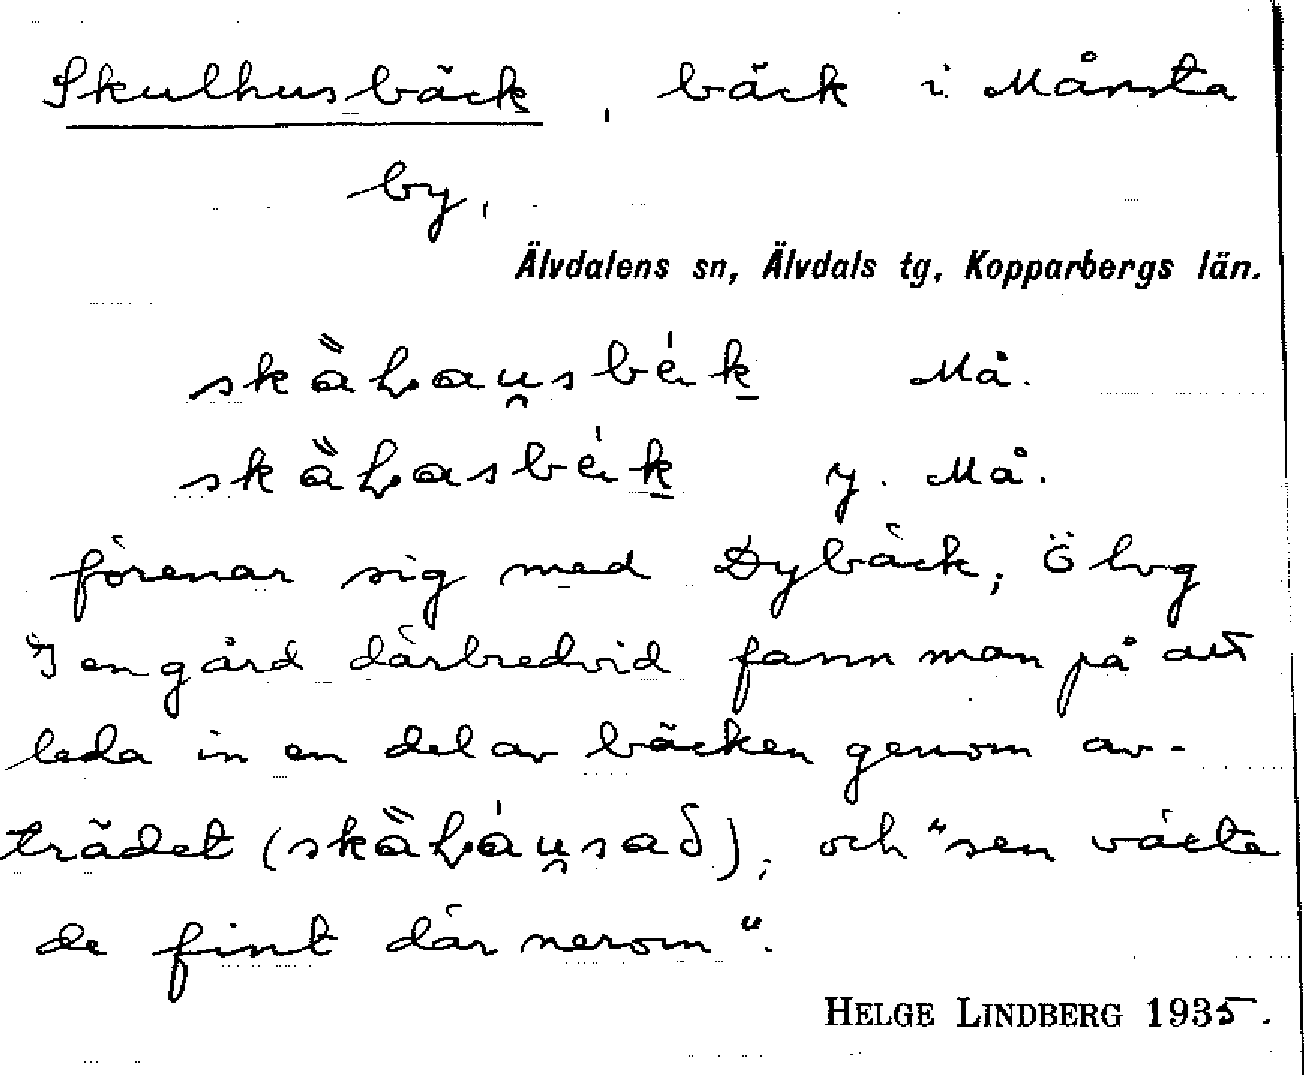 Skulhusbäck, bäck i Månsta
by,
Älvdalens sn, Älvdals tg, Kopparbergs län.
Må.
y. Må.
förenar sig med Dybäck, Ö lvg
I en gård därbredvid fann man på att
leda in en del av bäcken genom av-
trädet ( ), och "sen växte
de fint där nerom".
HELGE LINDBERG 1935.